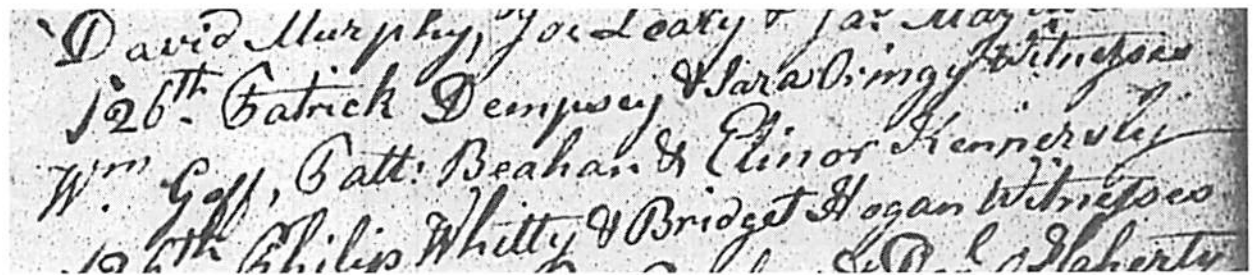 David Murphy, Joe Leaky &
26th Patrick Dempsey & Sara Witnesses
Wm. Goff, Patt: Beahan & Elinor Kennersly
26th Philip Whitty & Bridget Hogan Witnesses
& Flaherty